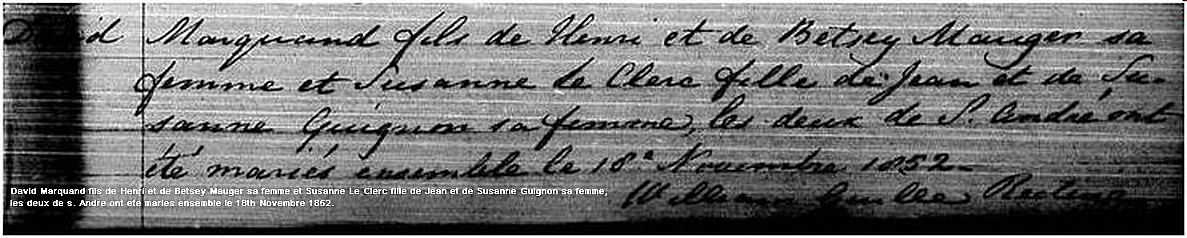 David Marquand fils de Henri et de Betsey Mauger sa
femme et Susanne Le Clerc fille de Jean et de Su-
sanne Guignon sa femme, les deux de S. André ont
été mariés ensemble le 18e Novembre 1852-
William Guille Recteur
David Marquand fils de Henri et de Betsey Mauger sa femme et Susanne Le Clerc fille de Jean et de Susanne Guignon sa femme,
les deux de s. Andre ont ete maries ensemble le 18th Novembre 1862.